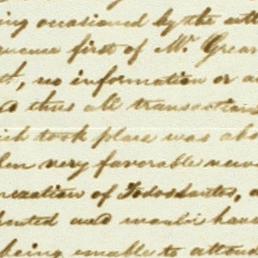 ing occasioned by the
quence first of Mr. Grear
t, no information or a
d thus all transactions
ich took place was abo
hen very favorable news
nization of Todos Santos,
hented and would have
being unable to attend